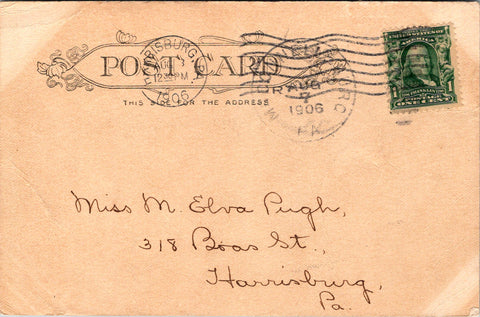 POST CARD
THIS SIDE FOR THE ADDRESS
HARRISBURG,
1906
AUG
7
1906
UNITED STATES OF
AMERICA
1 ONE CENT 1
Miss M. Elva Pugh,
318 Boas St.,
Harrisburg,
Pa.